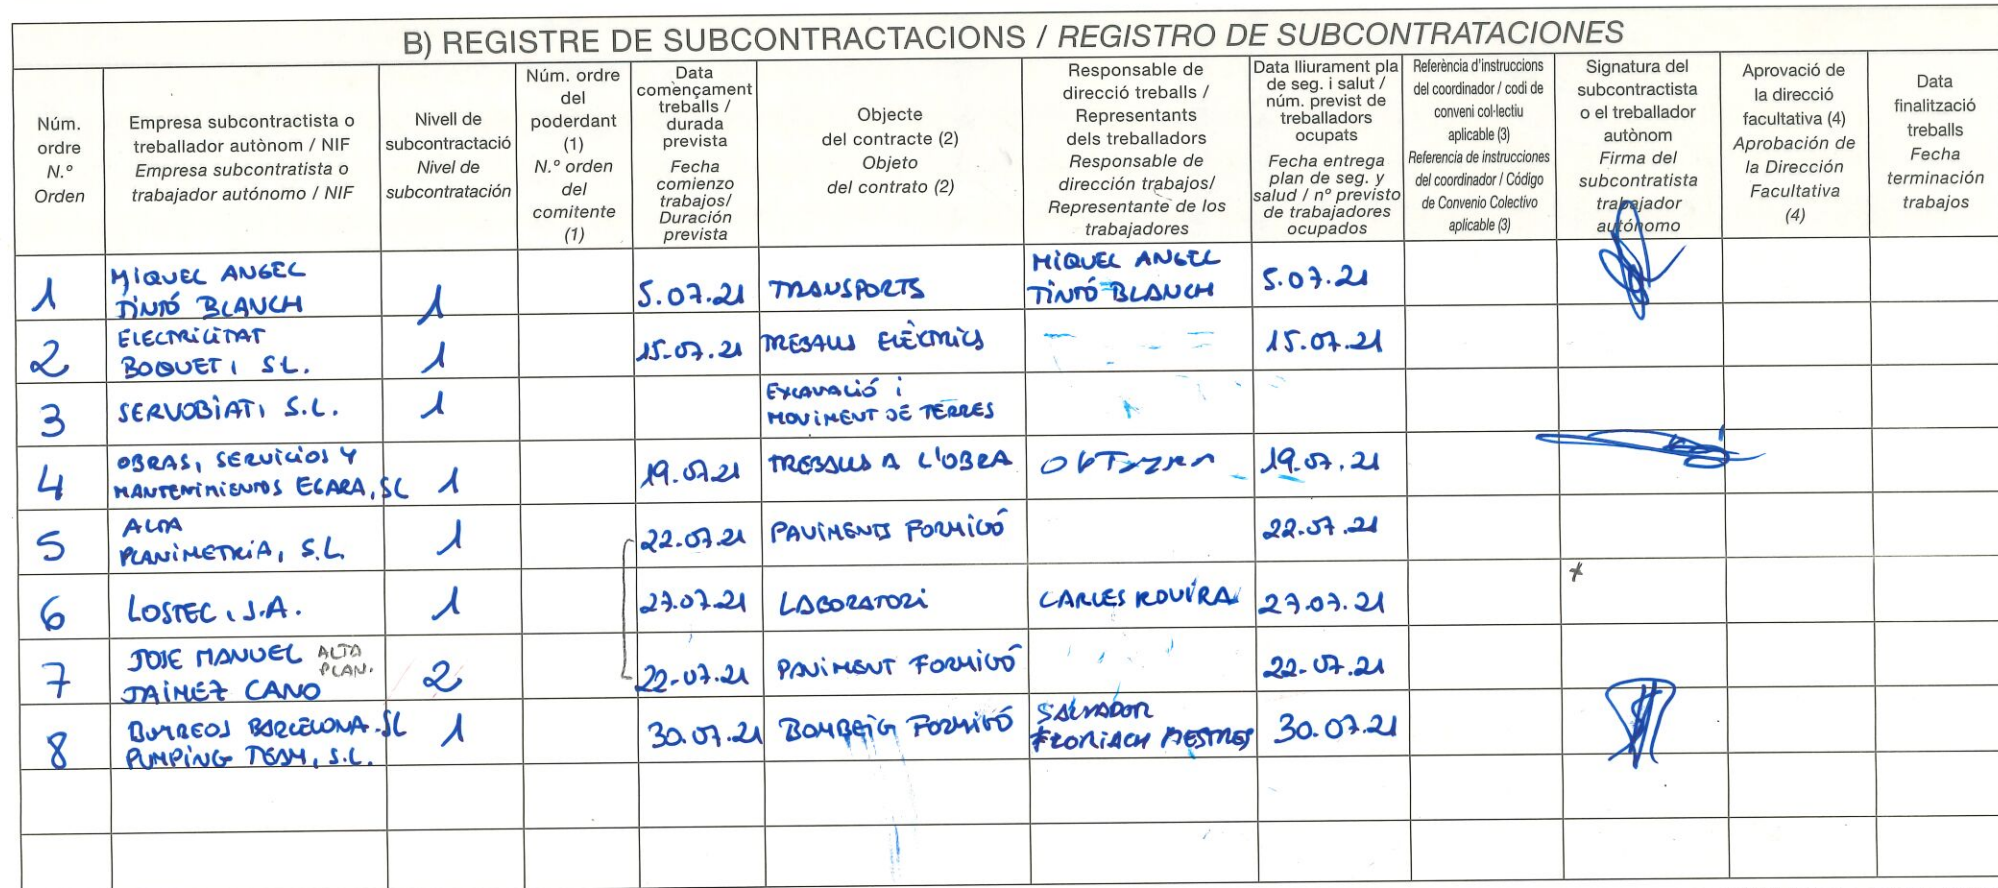 B) REGISTRE DE SUBCONTRACTACIONS / REGISTRO DE SUBCONTRATACIONES
Núm.
ordre
N.º
Orden
Empresa subcontractista o
treballador autònom / NIF
Empresa subcontratista o
trabajador autónomo / NIF
Nivell de
subcontractació
Nivel de
subcontratación
Núm. ordre
del
poderdant
(1)
N.º orden
del
comitente
(1)
Data
començament
treballs /
durada
prevista
Fecha
comienzo
trabajos/
Duración
prevista
Objecte
del contracte (2)
Objeto
del contrato (2)
Responsable de
direcció treballs /
Representants
dels treballadors
Responsable de
dirección trabajos/
Representante de los
trabajadores
Data lliurament pla
de seg. i salut /
núm. previst de
treballadors
ocupats
Fecha entrega
plan de seg. y
salud / nº previsto
de trabajadores
ocupados
Referència d'instruccions
del coordinador / codi de
conveni col·lectiu
aplicable (3)
Referencia de instrucciones
del coordinador / Código
de Convenio Colectivo
aplicable (3)
Signatura del
subcontractista
o el treballador
autònom
Firma del
subcontratista
trabajador
autónomo
Aprovació de
la direcció
facultativa (4)
Aprobación de
la Dirección
Facultativa
(4)
Data
finalització
treballs
Fecha
terminación
trabajos
1
MIQUEL ANGEL
TINTÓ BLANCH
1
5.07.21
TRANSPORTS
MIQUEL ANGEL
TINTÓ BLANCH
5.07.21
2
ELECTRICITAT
BOQUET, SL.
1
15.07.21
TREBALLS ELÈCTRICS
15.07.21
3
SERVOBIATI S.L.
1
EXCAVACIÓ i
MOVIMENT DE TERRES
4
OBRAS, SERVICIOS Y
MANTENIMIENTOS EGARA, SL
1
19.07.21
TREBALLS A L'OBRA
19.07.21
5
ALTA
PLANIMETRIA, S.L.
1
22.07.21
PAVIMENTS FORMIGÓ
22.07.21
6
LOSTEC, S.A.
1
27.07.21
LABORATORI
CARLES ROVIRA
27.07.21
7
JOSE MANUEL ALTA
PLAN.
JAIMEZ CANO
2
22.07.21
PAVIMENT FORMIGÓ
22.07.21
8
BOMBEOS BARCELONA SL
PUMPING TEAM, S.L.
1
30.07.21
BOMBEIG FORMIGÓ
SALVADOR
FLORIACH MESTRES
30.07.21